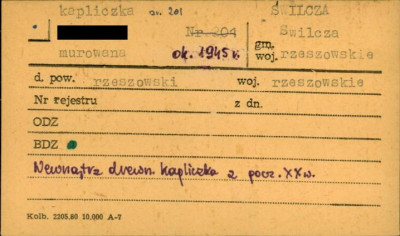 kapliczka nr. 201 ŚWILCZA
Nr 204 gm. Świlcza
murowana ok. 1945 r. woj. rzeszowskie
d. pow. rzeszowski woj. rzeszowskie
Nr rejestru z dn.
ODZ
BDZ
Wewnątrz drewn. kapliczka z pocz. XX w.
Kolb. 2205.80 10.000 A-7